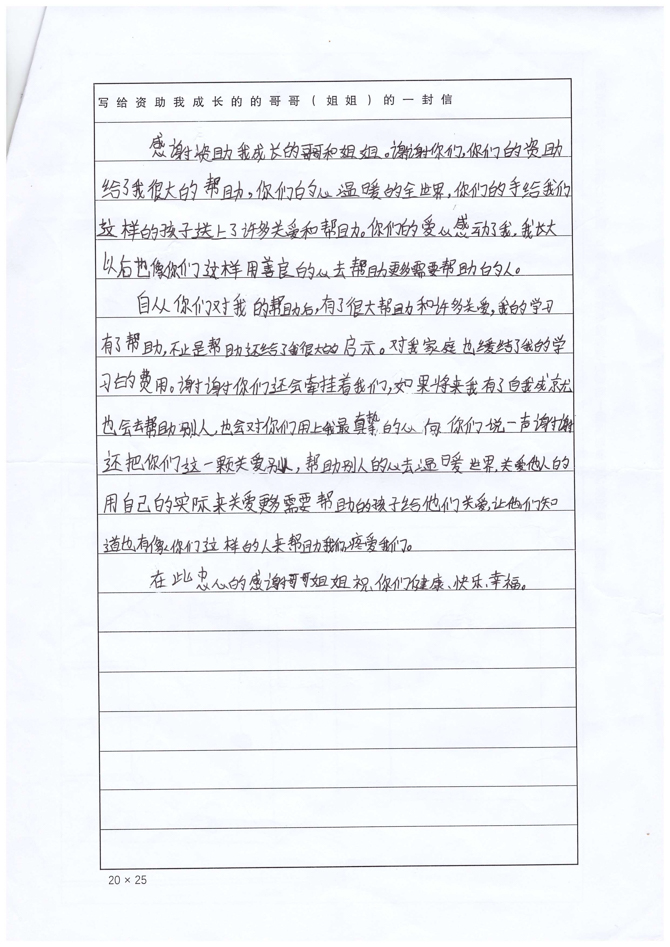 写给资助我成长的的哥哥（姐姐）的一封信
感谢资助我成长的哥哥和姐姐。谢谢你们，你们的资助
给了我很大的帮助，你们的心温暖的全世界，你们的手给我们
这样的孩子送上了许多关爱和帮助。你们的爱心感动了我，我长大
以后也像你们这样用善良的心去帮助更多需要帮助的人。
自从你们对我的帮助后，有了很大帮助和许多关爱，我的学习
有了帮助，不止是帮助还给了我很大的启示。对我家庭也缓结了我的学
习的费用。谢谢你们还会牵挂着我们，如果将来我有了自我成就
也会去帮助别人，也会对你们用上我最真挚的心向你们说一声谢谢
还把你们这一颗关爱别人，帮助别人的心去温暖世界，关爱他人的
用自己的实际来关爱更多需要帮助的孩子给他们关爱，让他们知
道也有像你们这样的人来帮助我们，疼爱我们。
在此忠心的感谢哥哥姐姐祝、你们健康、快乐、幸福。
20×25